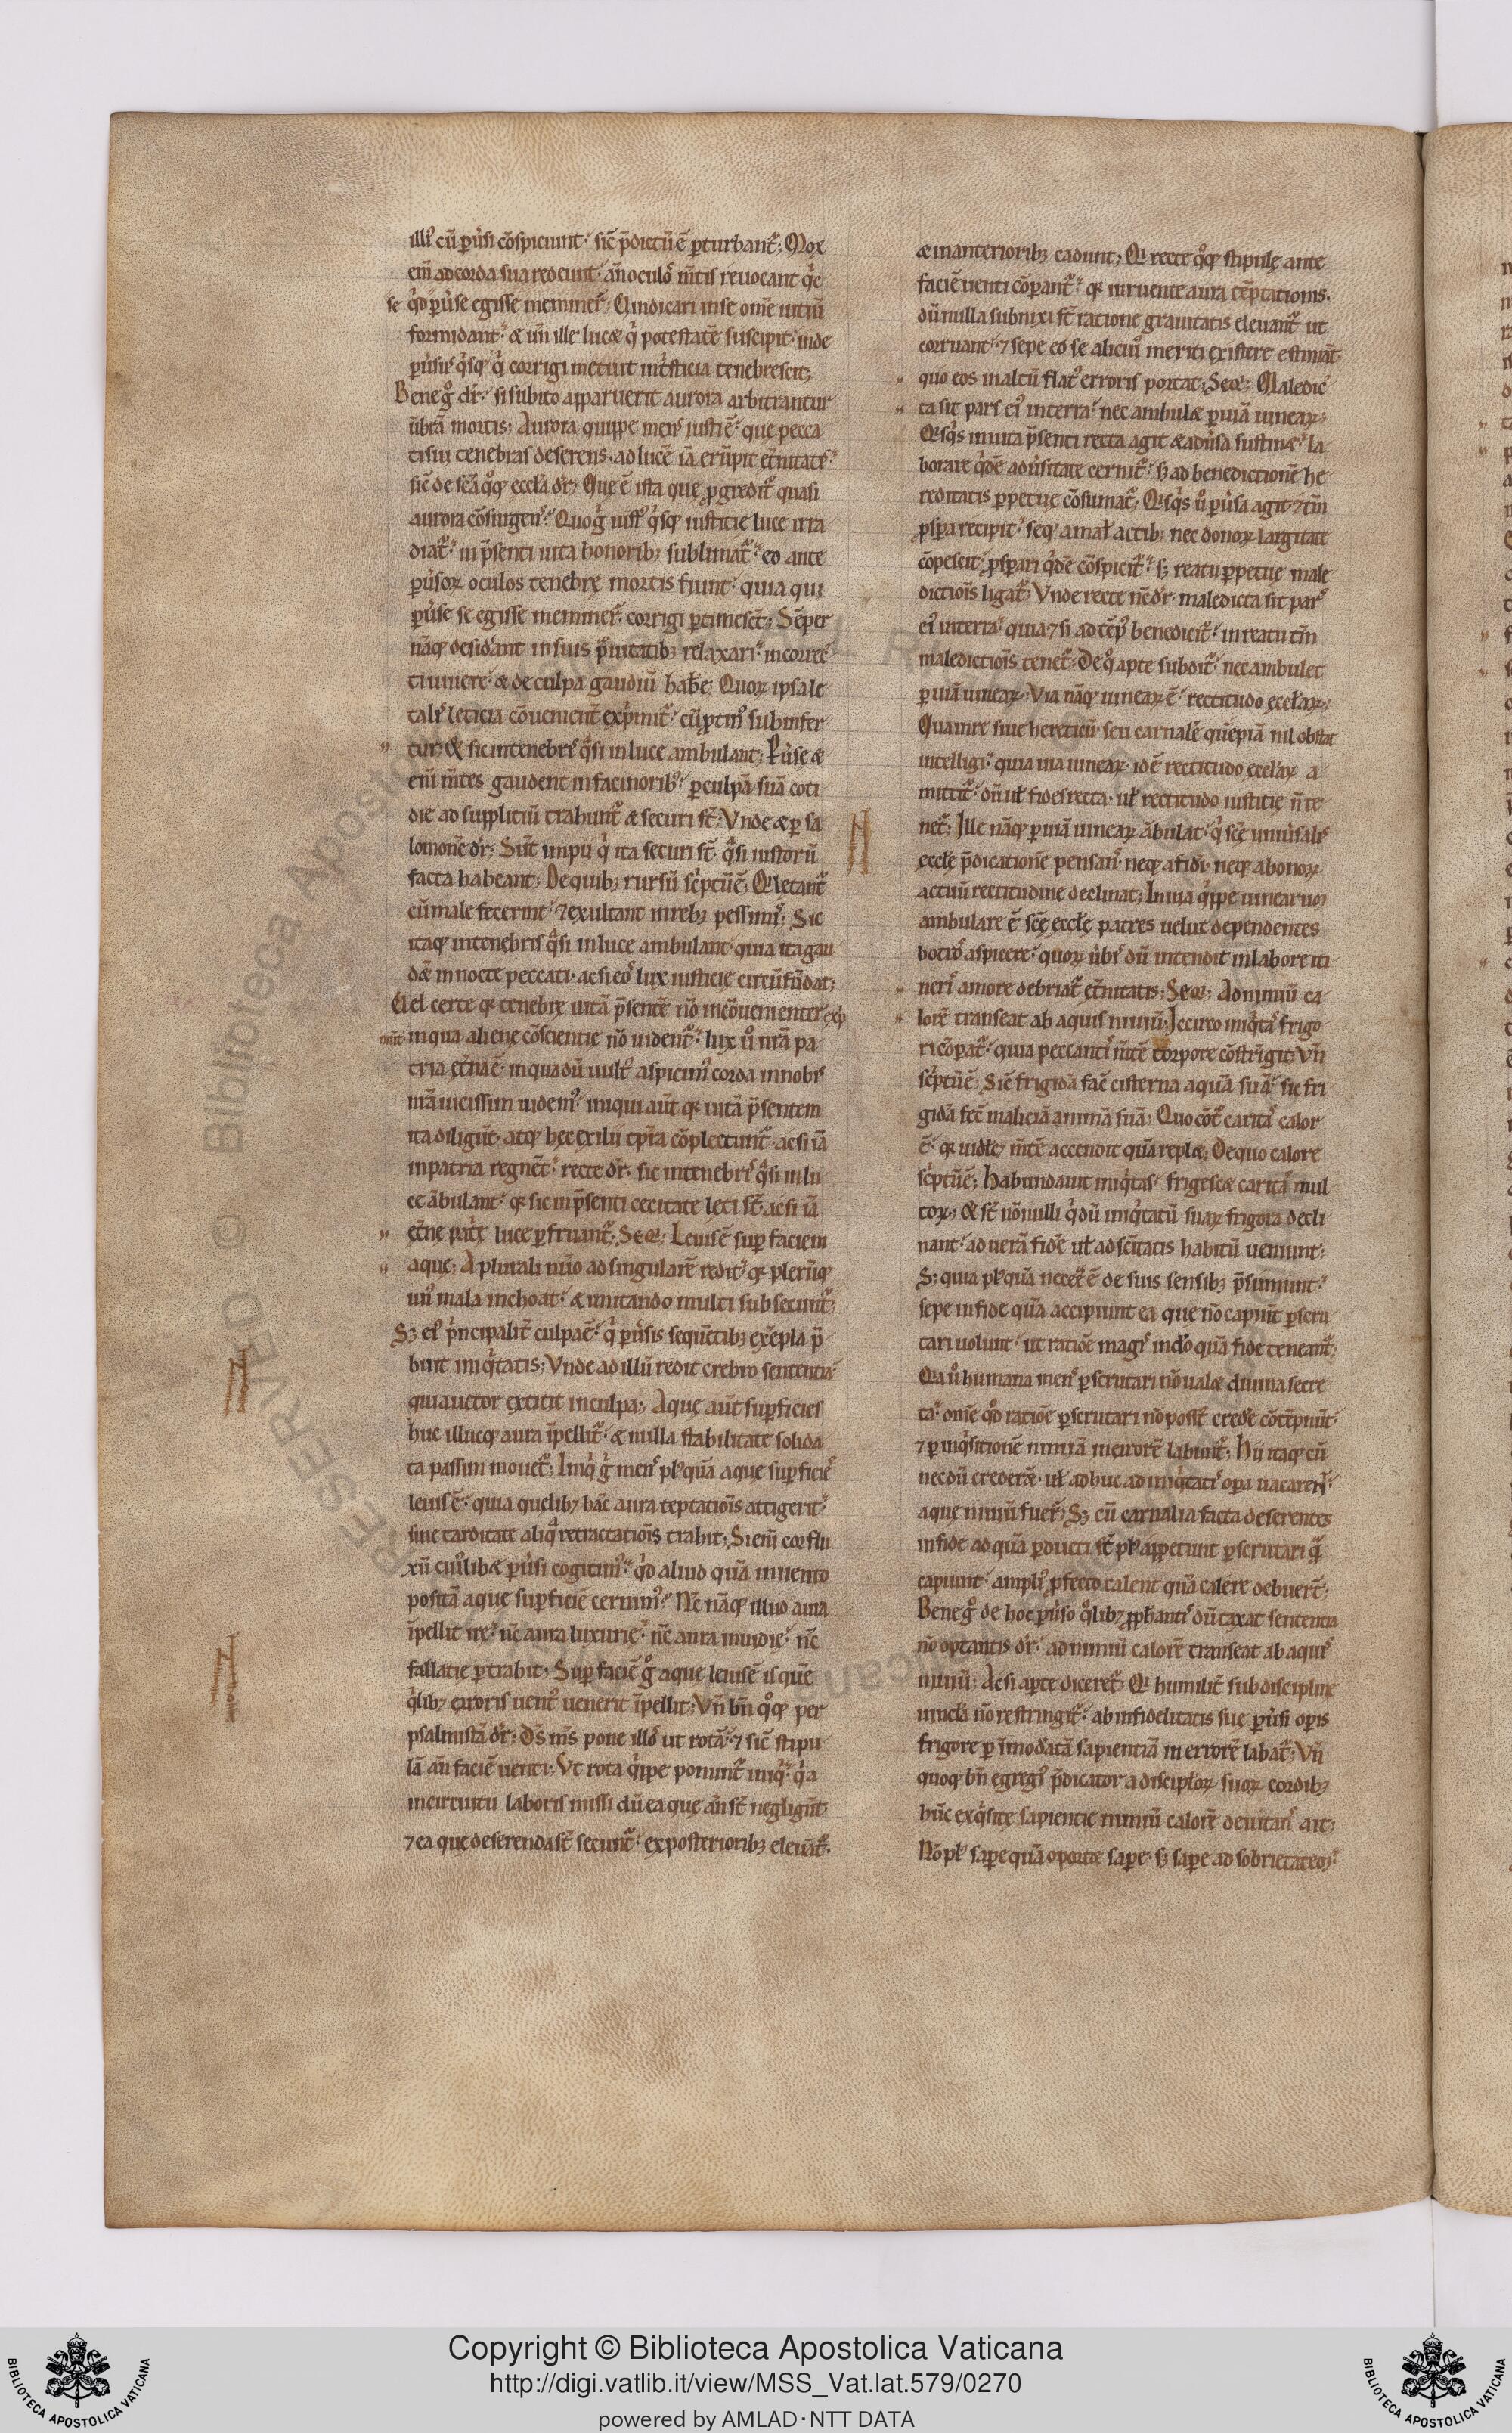 illi᷒ cũ ꝑũsi cõspiciunt. sic̃ p̃dictũ ẽ ꝑturbant᷑; Mox
eni᷒ ad corda sua redeunt. añ oculos m̃tis reuocant q̃c
se qd̃ ꝑuse egisse meminer̃; Q indicari in se om̃e uitiũ
formidant. & uñ ille lucet q̃ potestatẽ suscipit. inde
ꝑũsus q̃sq; q̃ corrigi metuit int᷑sticia tenebrescit;
Bene g̊ dr̃. si subito apparuerit aurora arbitrantur
ũbrã mortis; Aurora quippe mens iusti ẽ. que pecca
ti sui tenebras deserens. ad lucẽ iã erũpit et̃nitatẽ.
sic̃ de sc̃a q̊q; ecclã dr̃; Que ẽ ista que ꝓgredit᷑ quasi
aurora cõsurgens. Quo g̊ iust᷒ q̃sq; iusticie luce irra
diat᷑. in p̃senti uita honorib; sublimat᷑. eo ante
ꝑũsoꝝ oculos tenebrę mortis fiunt. quia qui
ꝑuse se egisse meminer̃. corrigi ꝑtimesc̃t; Sẽper
nãq; desid̃ant in suis p̃uitatib; relaxari. incorrec̃
ti uiuere. & de culpa gaudiũ habẽ; Quoꝝ ipsa le
talis leticia cõuenient̃ exp̃mit᷑. cũ ꝓtin᷒ subinfer
tur; & sic in tenebris q̃si in luce ambulant; Pũse &
eni᷒ m̃tes gaudent in facinorib᷒. ꝑ culpã suã coti
die ad suppliciũ trahunt᷑ & securi st̃; Vnde & ꝑ sa
lomonẽ dr̃; Sũt impii q̃ ita securi st̃. q̃si iustorũ
facta habeant; De quib; rursũ sc̃ptũ ẽ; Q̃ letant᷑
cũ male fecerint. ⁊ exultant in reb; pessimis; Sic
itaq; in tenebris q̃si in luce ambulant. quia ita gau
dẽt in nocte peccati. ac si eos lux iusticię circũfũdat;
Vel certe q; tenebrę uitã p̃sentẽ nõ incõuenienter exp̃
mũt. in qua alienę cõscientię nõ uident᷑. lux ũ nr̃a pa
tria et̃na ẽ. in qua dũ uult᷒ aspicim᷒ corda in nobis
nr̃a uicissim uidem᷒. iniqui aũt q; uitã p̃sentem
ita diligũt. atq; hec exilii tp̃ra cõplectunt᷑. ac si iã
in patria regnẽt. recte dr̃. sic in tenebris q̃si in lu
ce ãbulant. q; sic in p̃senti cecitate leti st̃. ac si iã
et̃nę pat̃ę luce ꝑfruant᷑. Seq̃; Leuis ẽ super faciem
aque; A plurali nũo ad singularẽ redit. q; plerũq;
un᷒ mala inchoat. & imitando multi subsecunt᷑;
S; ei᷒ p̃ncipalit̃ culpa ẽ. q̃ ꝑũsis sequẽtib; exẽpla p̃
buit iniq̃tatis; Vnde ad illũ redit crebro sententia.
qui auctor extitit in culpa; Aque aũt superficies
huc illucq; aura ĩpellit᷑. & nulla stabilitate solida
ta passim mouet᷑; Iniq̃ g̊ mens pl᷒ quã aque superficies
leuis ẽ. quia quęlib; hãc aura tẽptatiois attigerit.
sine tarditate aliq̃ retractatiois trahit; Si eni᷒ cor flu
xũ cui᷒libet ꝑũsi cogitem᷒. qd̃ aliud quã in uento
positã aque superficiẽ cernim᷒. Nc̃ nãq; illud aura
ĩpellit irę. nc̃ aura luxurię. nc̃ aura inuidię. nc̃
fallacię ꝑtrahit; Super faciẽ g̊ aque leuis ẽ is quẽ
q̃lib; erroris uent᷒ uenerit ĩpellit; Vñ bñ q̊q; per
psalmistã dr̃; Ds̃ ms̃ pone illos ut rotã. ⁊ sic̃ stipu
lã añ faciẽ uenti; Vt rota q̃ppe ponunt᷑ iniq̃. q̃a
in circuitu laboris missi dũ ea que añ st̃ negligũt.
⁊ ea que deserenda st̃ secunt᷑. ex posterioribus eleuãt᷑.
& in anteriorib; cadunt; Q recte q̊q; stipulę ante
faciẽ uenti cõparant᷑. q; irruente aura tẽptationis.
dũ nulla subnixi st̃ ratione grauitatis eleuant᷑ ut
corruant. ⁊ sepe eo se alicui᷒ meriti existere estimãt.
quo eos in altũ flat᷒ erroris portat; Seq̃; Maledic
ta sit pars ei᷒ in terra. nec ambulet ꝑ uiã uineaꝝ;
Q̃sq̃s in uita p̃senti recta agit & adũsa sustinet. la
borare q̃dẽ adũsitate cernit᷑. s; ad benedictionẽ he
reditatis ꝑpetuę cõsumat᷑; Q̃sq̃s ũ ꝑũsa agit ⁊ tm̃
ꝓspera recipit. seq; a malis actib; nec donoꝝ largitate
cõpescit. ꝓsperari q̃dẽ cõspicit᷑. s; reatu ꝑpetuę male
dictiois ligat᷑; Vnde recte nc̃ dr̃. maledicta sit pars
ei᷒ in terra. quia ⁊ si ad tẽp᷒ benedicit᷑. in reatu tm̃
maledictiois tenet᷑. De q̊ apte subdit᷑. nec ambulet
ꝑ uiã uineaꝝ. Via nãq; uineaꝝ ẽ. rectitudo ecclaꝝ;
Qua in re siue hereticũ seu carnalẽ quẽpiã nil obstat
intelligi. quia uia uineaꝝ. id ẽ rectitudo ecclaꝝ a
mittit᷑. dũ ul̃ fides recta. ul̃ rectitudo iustitię ñ te
net᷑; Ille nãq; ꝑ uiã uineaꝝ ãbulat. q̃ sc̃ę uniũsalis
ecclę p̃dicationẽ pensans. neq; a fidei. neq; a bonoꝝ
actuũ rectitudine declinat; In uia q̃ppe uinearum
ambulare ẽ sc̃ę ecclę patres uelut dependentes
botros aspicere. quoꝝ ũbis dũ intendit in labore iti
neris amore debriat᷑ et̃nitatis; Seq̃; Ad nimiũ ca
lorẽ transeat ab aquis niuiũ; Iccirco iniq̃tas frigo
ri cõparat᷑. quia peccantis m̃tẽ torpore cõstringit; Vñ
sc̃ptũ ẽ; Sic̃ frigidã fac̃ cisterna aquã suã. sic fri
gidã fec̃ maliciã animã suã; Quo cõt᷑ caritas calor
ẽ. q; uidel; m̃tẽ accendit quã replet; De quo calore
sc̃ptũ ẽ; Habundauit iniq̃tas. frigescet caritas mul
toꝝ; & st̃ nõnulli q̃ dũ iniq̃tatũ suaꝝ frigora decli
nant. ad uerã fidẽ ul̃ ad sc̃itatis habitũ ueniunt;
S; quia pl᷒ quã necesse ẽ de suis sensib; p̃sumunt.
sepe in fide quã accipiunt ea que nõ capiũt ꝑscru
tari uolunt. ut ratiõe magis in dõ quã fide teneant᷑;
Q̃a ũ humana mens ꝑscrutari nõ ualet diuina secre
ta. om̃e qd̃ ratiõe ꝑscrutari nõ possт̃ credẽ cõtẽpnũt.
⁊ ꝑ inq̃sitionẽ nimiã in errorẽ labunt᷑; Hii itaq; cũ
necdũ crederẽt. ul̃ adhuc ad iniq̃tatis opera uacarent.
aque niuiũ fuer̃; S; cũ carnalia facta deserentes
in fide ad quã ꝑducti st̃ pl᷒ appetunt ꝑscrutari q̃
capiunt. ampli᷒ ꝓfecto calent quã calere debuer̃t.
Bene g̊ de hoc ꝑũso q̊lib; ꝓphantis dũtaxat sententia
nõ optantis dr̃. ad nimiũ calorẽ transeat ab aquis
niuiũ; Ac si aperte diceret᷑; Q̃ humilit̃ sub disciplinę
uincłã nõ restringit᷑. ab infidelitatis suę ꝑũsi operis
frigore ꝑ ĩmod̃atã sapientiã in errorẽ labat᷑; Vñ
quoq; bñ egregi᷒ p̃dicator a discipłoꝝ suoꝝ cordib;
hũc exq̃sitę sapientię nimiũ calorẽ deuitans ait;
Nõ pl᷒ sapere quã oportet sapere. s; sapere ad sobrietatem.
Copyright © Biblioteca Apostolica Vaticana
http://digi.vatlib.it/view/MSS_Vat.lat.579/0270
powered by AMLAD·NTT DATA